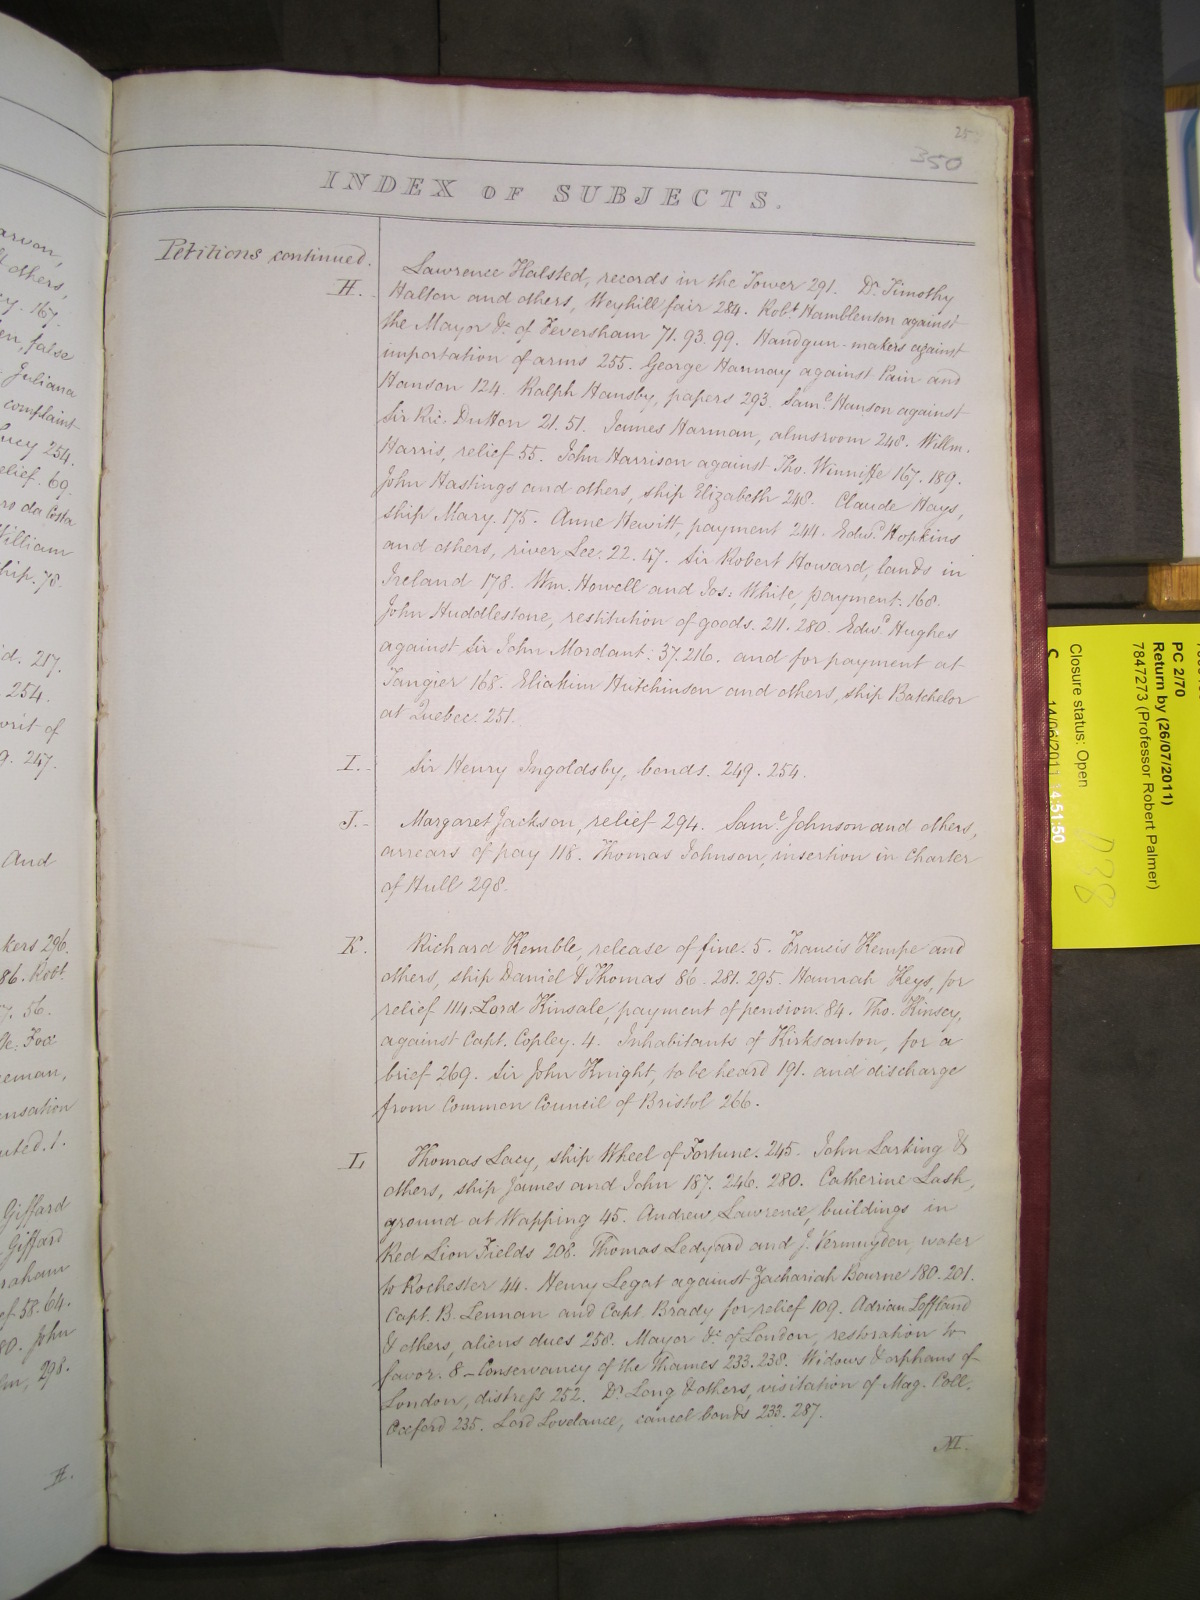 arvon,
others,
cy. 167.
en, false
Juliana
complaint
ucy 254.
elief. 69.
ro da Costa
William
hip. 78.
id. 217.
254.
writ of
9. 247.
And
kers 296.
86. Robt
7. 56.
&c. Fox
eeman,
ensation
uted. 1.
Giffard
Giffard
raham
ef 58. 64.
80. John
298.
H.
25
350
INDEX OF SUBJECTS.
Petitions continued.
H.
Lawrence Halsted, records in the Tower 291. Dr. Timothy
Halton and others, Weyhill fair 284. Robt. Hamblenton against
the Mayor &c. of Feversham 71. 93. 99. Handgun-makers against
importation of arms 255. George Hannay against Pain and
Hanson 124. Ralph Hansby, papers 293. Saml. Hanson against
Sir Ric. Dutton 21. 51. James Harman, almsroom 248. Willm.
Harris, relief 55. John Harrison against Tho. Winniffe 167. 189.
John Hastings and others, ship Elizabeth 248. Claude Hays,
ship Mary. 175. Anne Hewitt, payment 244. Edwd. Hopkins
and others, river Lee. 22. 47. Sir Robert Howard, lands in
Ireland 178. Wm. Howell and Jos: White, payment. 168.
John Huddlestone, restitution of goods. 211. 280. Edwd. Hughes
against Sir John Mordant: 37. 216. and for payment at
Tangier 168. Eliakim Hutchinson and others, ship Batchelor
at Quebec. 251.
I.
Sir Henry Ingoldsby, bonds. 249. 254.
J.
Margaret Jackson, relief 294. Saml. Johnson and others,
arrears of pay 118. Thomas Johnson, insertion in Charter
of Hull 298.
K.
Richard Kemble, release of fine. 5. Francis Kempe and
others, ship Daniel & Thomas 86. 281. 295. Hannah Keys, for
relief 114. Lord Kinsale, payment of pension. 84. Tho. Kinsey,
against Capt. Copley. 4. Inhabitants of Kirksanton, for a
brief 269. Sir John Knight, to be heard 191. and discharge
from Common Council of Bristol 266.
L
Thomas Lacy, ship Wheel of Fortune. 245. John Larking &
others, ship James and John 187. 246. 280. Catherine Lash,
ground at Wapping 45. Andrew Lawrence, buildings in
Red Lion Fields 208. Thomas Ledyard and J. Vermuyden, water
to Rochester 44. Henry Legat against Zachariah Bourne 180. 201.
Capt. B. Lennan and Capt. Brady for relief 109. Adrian Loffland
& others, aliens dues 258. Mayor &c. of London, restoration to
favor. 8 - Conservancy of the Thames 233. 238. Widows & orphans of
London, distress 252. Dr. Long & others, visitation of Mag. Coll.
Oxford 235. Lord Lovelance, cancel bonds 233. 287.
M.
PC 2/70
Return by (26/07/2011)
7847273 (Professor Robert Palmer)
Closure status: Open
14/06/2011 14:51:50
D38